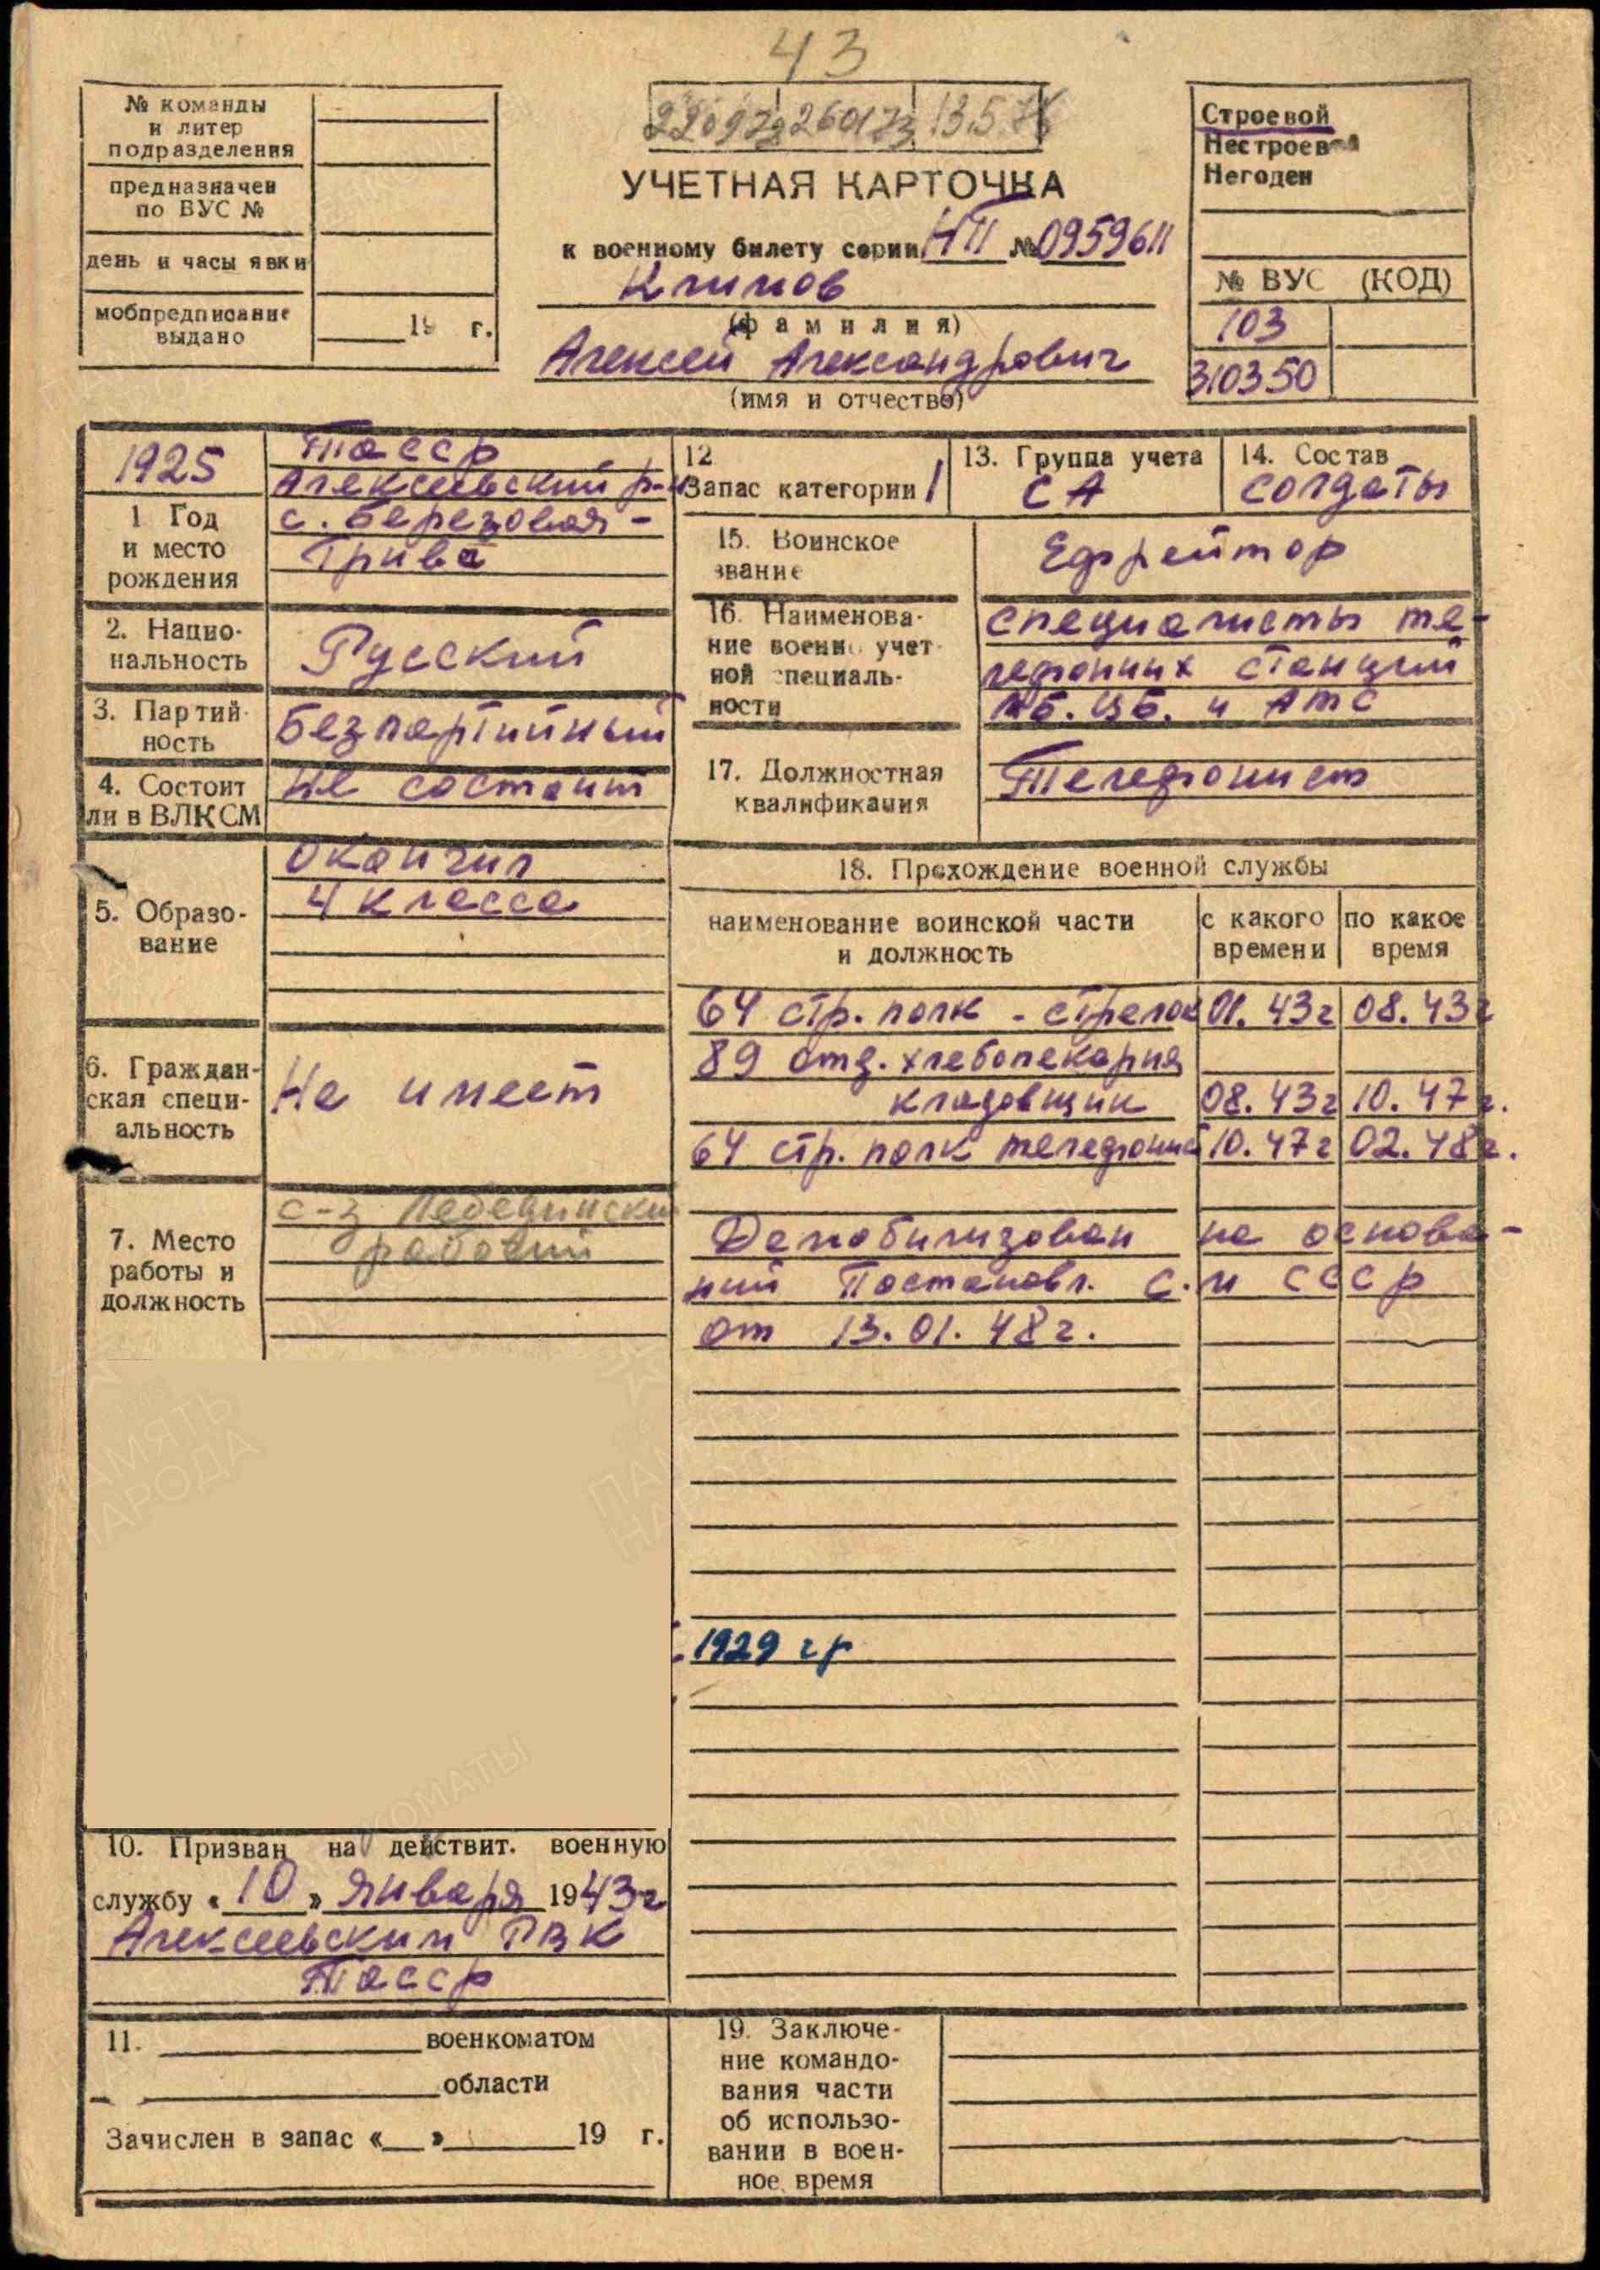 43
№ команды
и литер
подразделения
предназначен
по ВУС №
день и часы явки
мобпредписание
выдано
19 г.
13.5.76
УЧЕТНАЯ КАРТОЧКА
к военному билету серии НП № 0959611
Климов
(фамилия)
Алексей Александрович
(имя и отчество)
Строевой
Нестроевой
Негоден
№ ВУС (КОД)
103
310350
1925
1 Год
и место
рождения
Тасср
Алексеевский р-н
с. Березовая-
Грива
2. Нацио-
нальность
Русский
3. Партий-
ность
Безпартийный
4. Состоит
ли в ВЛКСМ
Не состоит
5. Образо-
вание
Окончил
4 класса
6. Граждан-
ская специ-
альность
Не имеет
7. Место
работы и
должность
с-з
рабочий
10. Призван на действит. военную
службу « 10 » января 1943г
Алексеевским РВК
Тасср
11. военкоматом
области
Зачислен в запас « » 19 г.
12
Запас категории 1
13. Группа учета
СА
14. Состав
Солдаты
15. Воинское
звание
Ефрейтор
16. Наименова-
ние военно учет-
ной специаль-
ности
специалисты те-
лефонных станций
МБ. ЦБ. и АТС
17. Должностная
квалификация
Телефонист
18. Прохождение военной службы
наименование воинской части
и должность
с какого
времени
по какое
время
64 стр. полк - стрелок 01. 43г 08. 43г
89 отд. хлебопекарня
кладовщик 08. 43г 10. 47г.
64 стр. полк телефонист 10. 47г 02. 48г.
Демобилизован на основа-
ний Постановл. С. м СССр
от 13. 01. 48г.
1929 гр
19. Заключе-
ние командо-
вания части
об использо-
вании в воен-
ное время
ПАМЯТЬ
НАРОДА